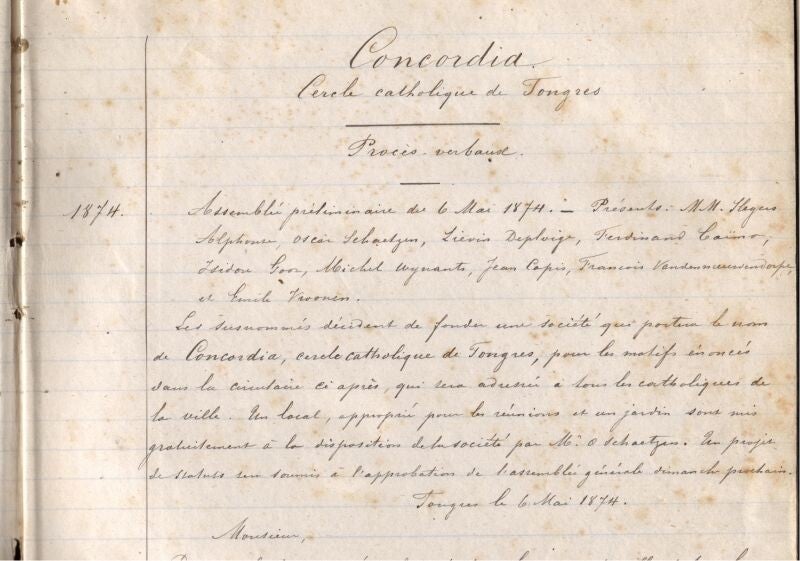 Concordia.
Cercle catholique de Tongres
Procès-verbaux.
1874.
Assemblée préliminaire du 6 Mai 1874. — Présents: MM.
Alphonse, Oscar Schaetzen, Liévin Deploige, Ferdinand
Isidore Goor, Michel Wynants, Jean Capis, François
et Emile Vroonen.
Les susnommés décident de fonder une société qui portera le nom
de Concordia, cercle catholique de Tongres, pour les motifs énoncés
dans la circulaire ci après, qui sera adressée à tous les catholiques de
la ville. Un local, approprié pour les réunions et un jardin sont mis
gratuitement à la disposition de la société par Mr. O Schaetzen. Un projet
de statuts sera soumis à l'approbation de l'assemblée générale dimanche prochain.
Tongres le 6 Mai 1874.
Monsieur,